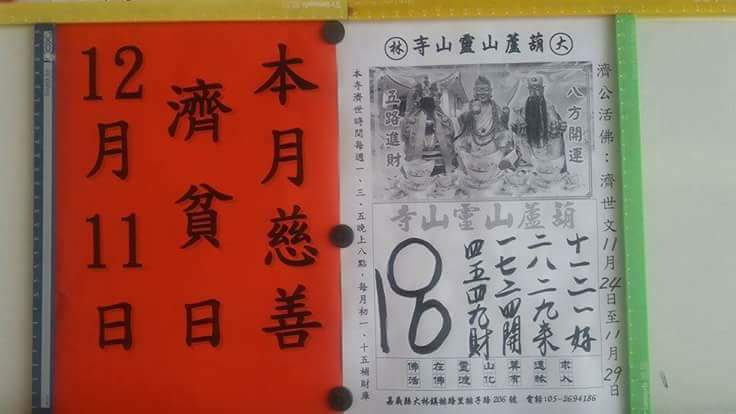 本月慈善
濟貧日
12月11日
大 葫蘆山靈山寺 林
濟公活佛：濟世文11月24日至11月29日
八方開運
五路進財
葫蘆山靈山寺
十一二一好
二八二九来
一七二四開
四五四九財
本寺濟世時間每週一、三、五晚上八點，每月初一、十五補財庫
嘉義縣大林鎮排路里排子路 206 號 電話:05-2694186